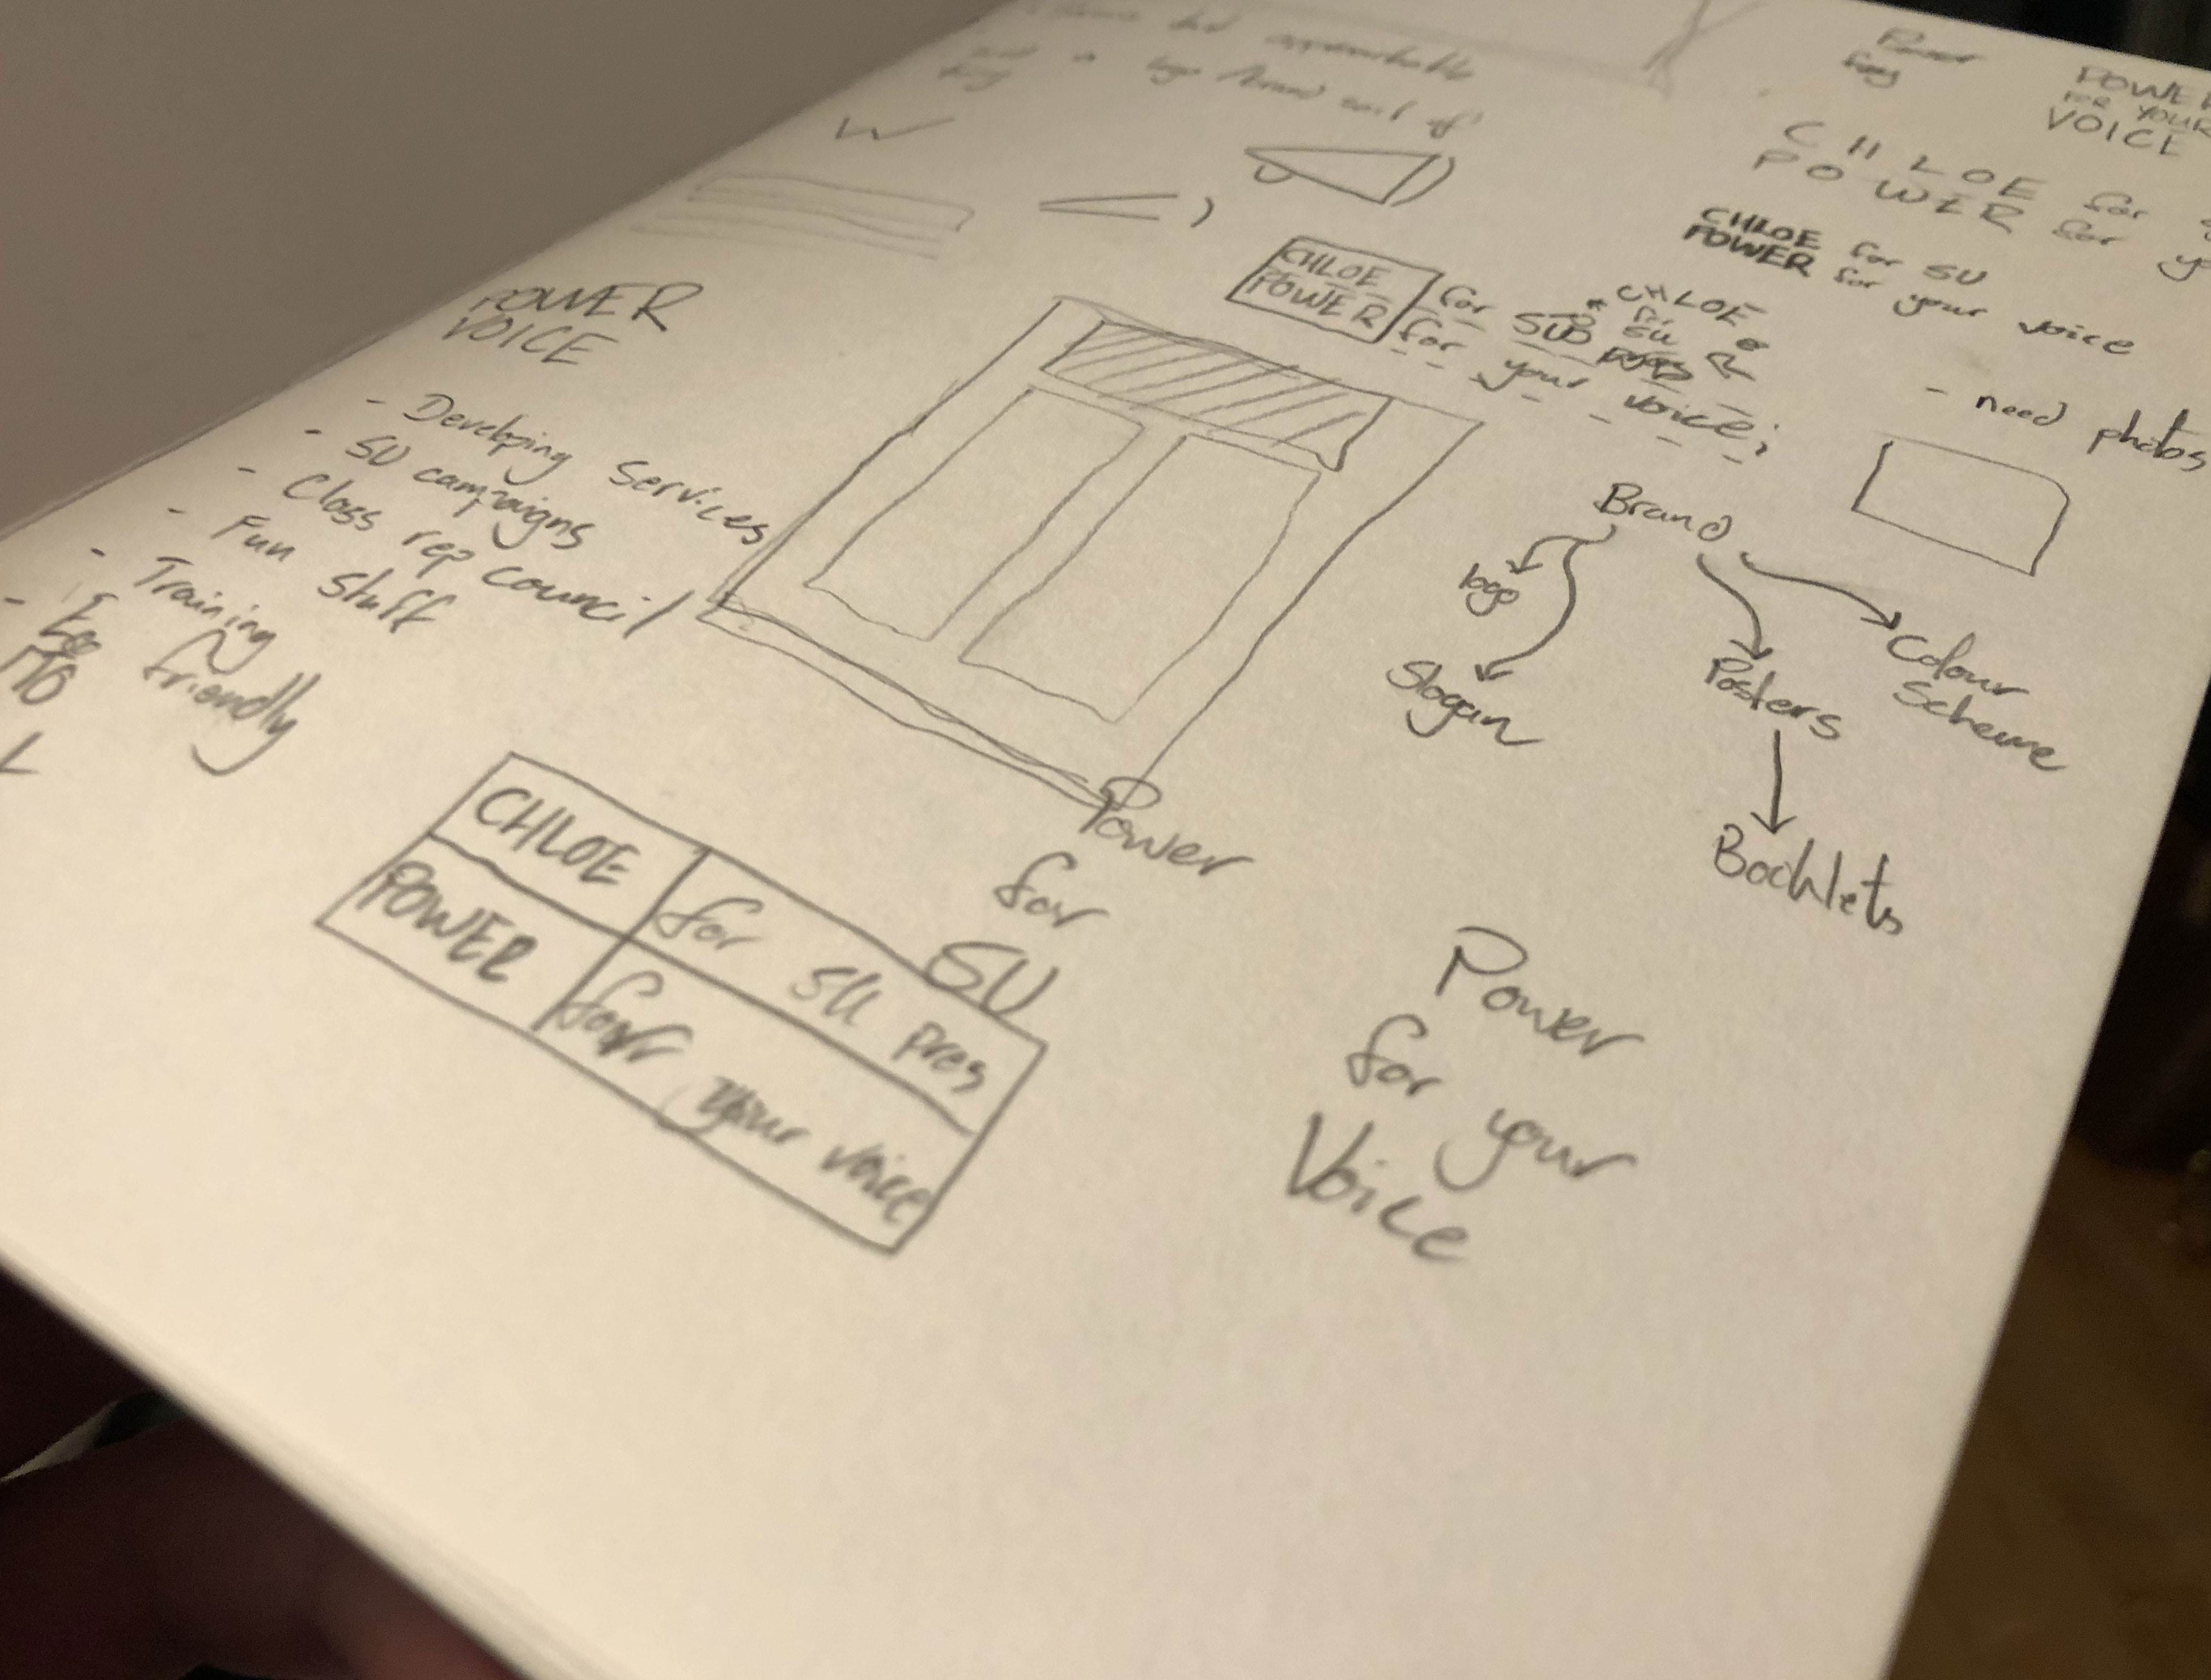 approachable
a logo / brand sort of
Power
POWER
FOR YOUR
VOICE
CHLOE for
POWER for
CHLOE for SU
POWER for your voice
- need photos
W
CHLOE for SU
POWER for your voice;
* CHLOE
SU
POWER
VOICE
- Developing Services
- SU campaigns
- Class rep council
- Fun Stuff
- Training
friendly
Brand
logo
Slogan
Posters
Colour
Scheme
Booklets
Power
for
SU
CHLOE for SU pres
POWER for your voice
Power
for your
Voice